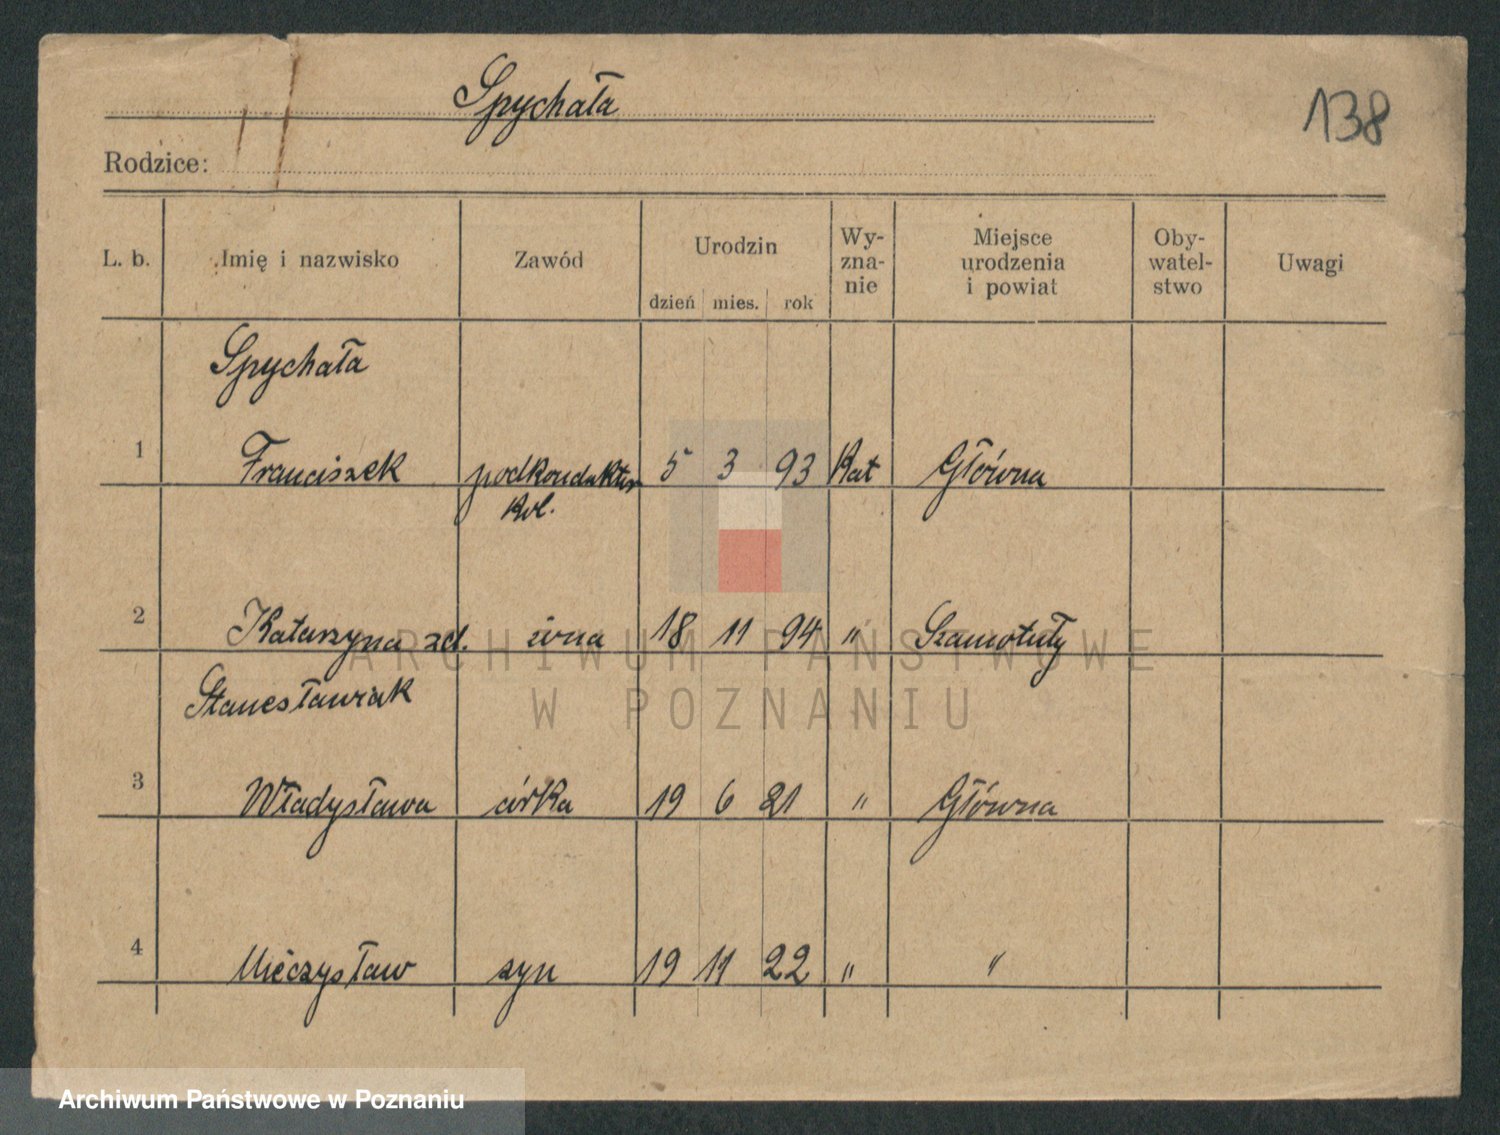 Spychała
138
Rodzice:
L. b. Imię i nazwisko Zawód Urodzin dzień mies. rok Wy-zna-nie Miejsce urodzenia i powiat Oby-watel-stwo Uwagi
Spychała
1 Franciszek podkonduktor 5 3 93 Kat Główna
kol.
2 Katarzyna zd. żona 18 11 94 " Szamotuły
Stanesławiak
3 Władysława córka 19 6 21 " Główna
4 Mieczysław syn 19 11 22 " "
ARCHIWUM PAŃSTWOWE
W POZNANIU
Archiwum Państwowe w Poznaniu